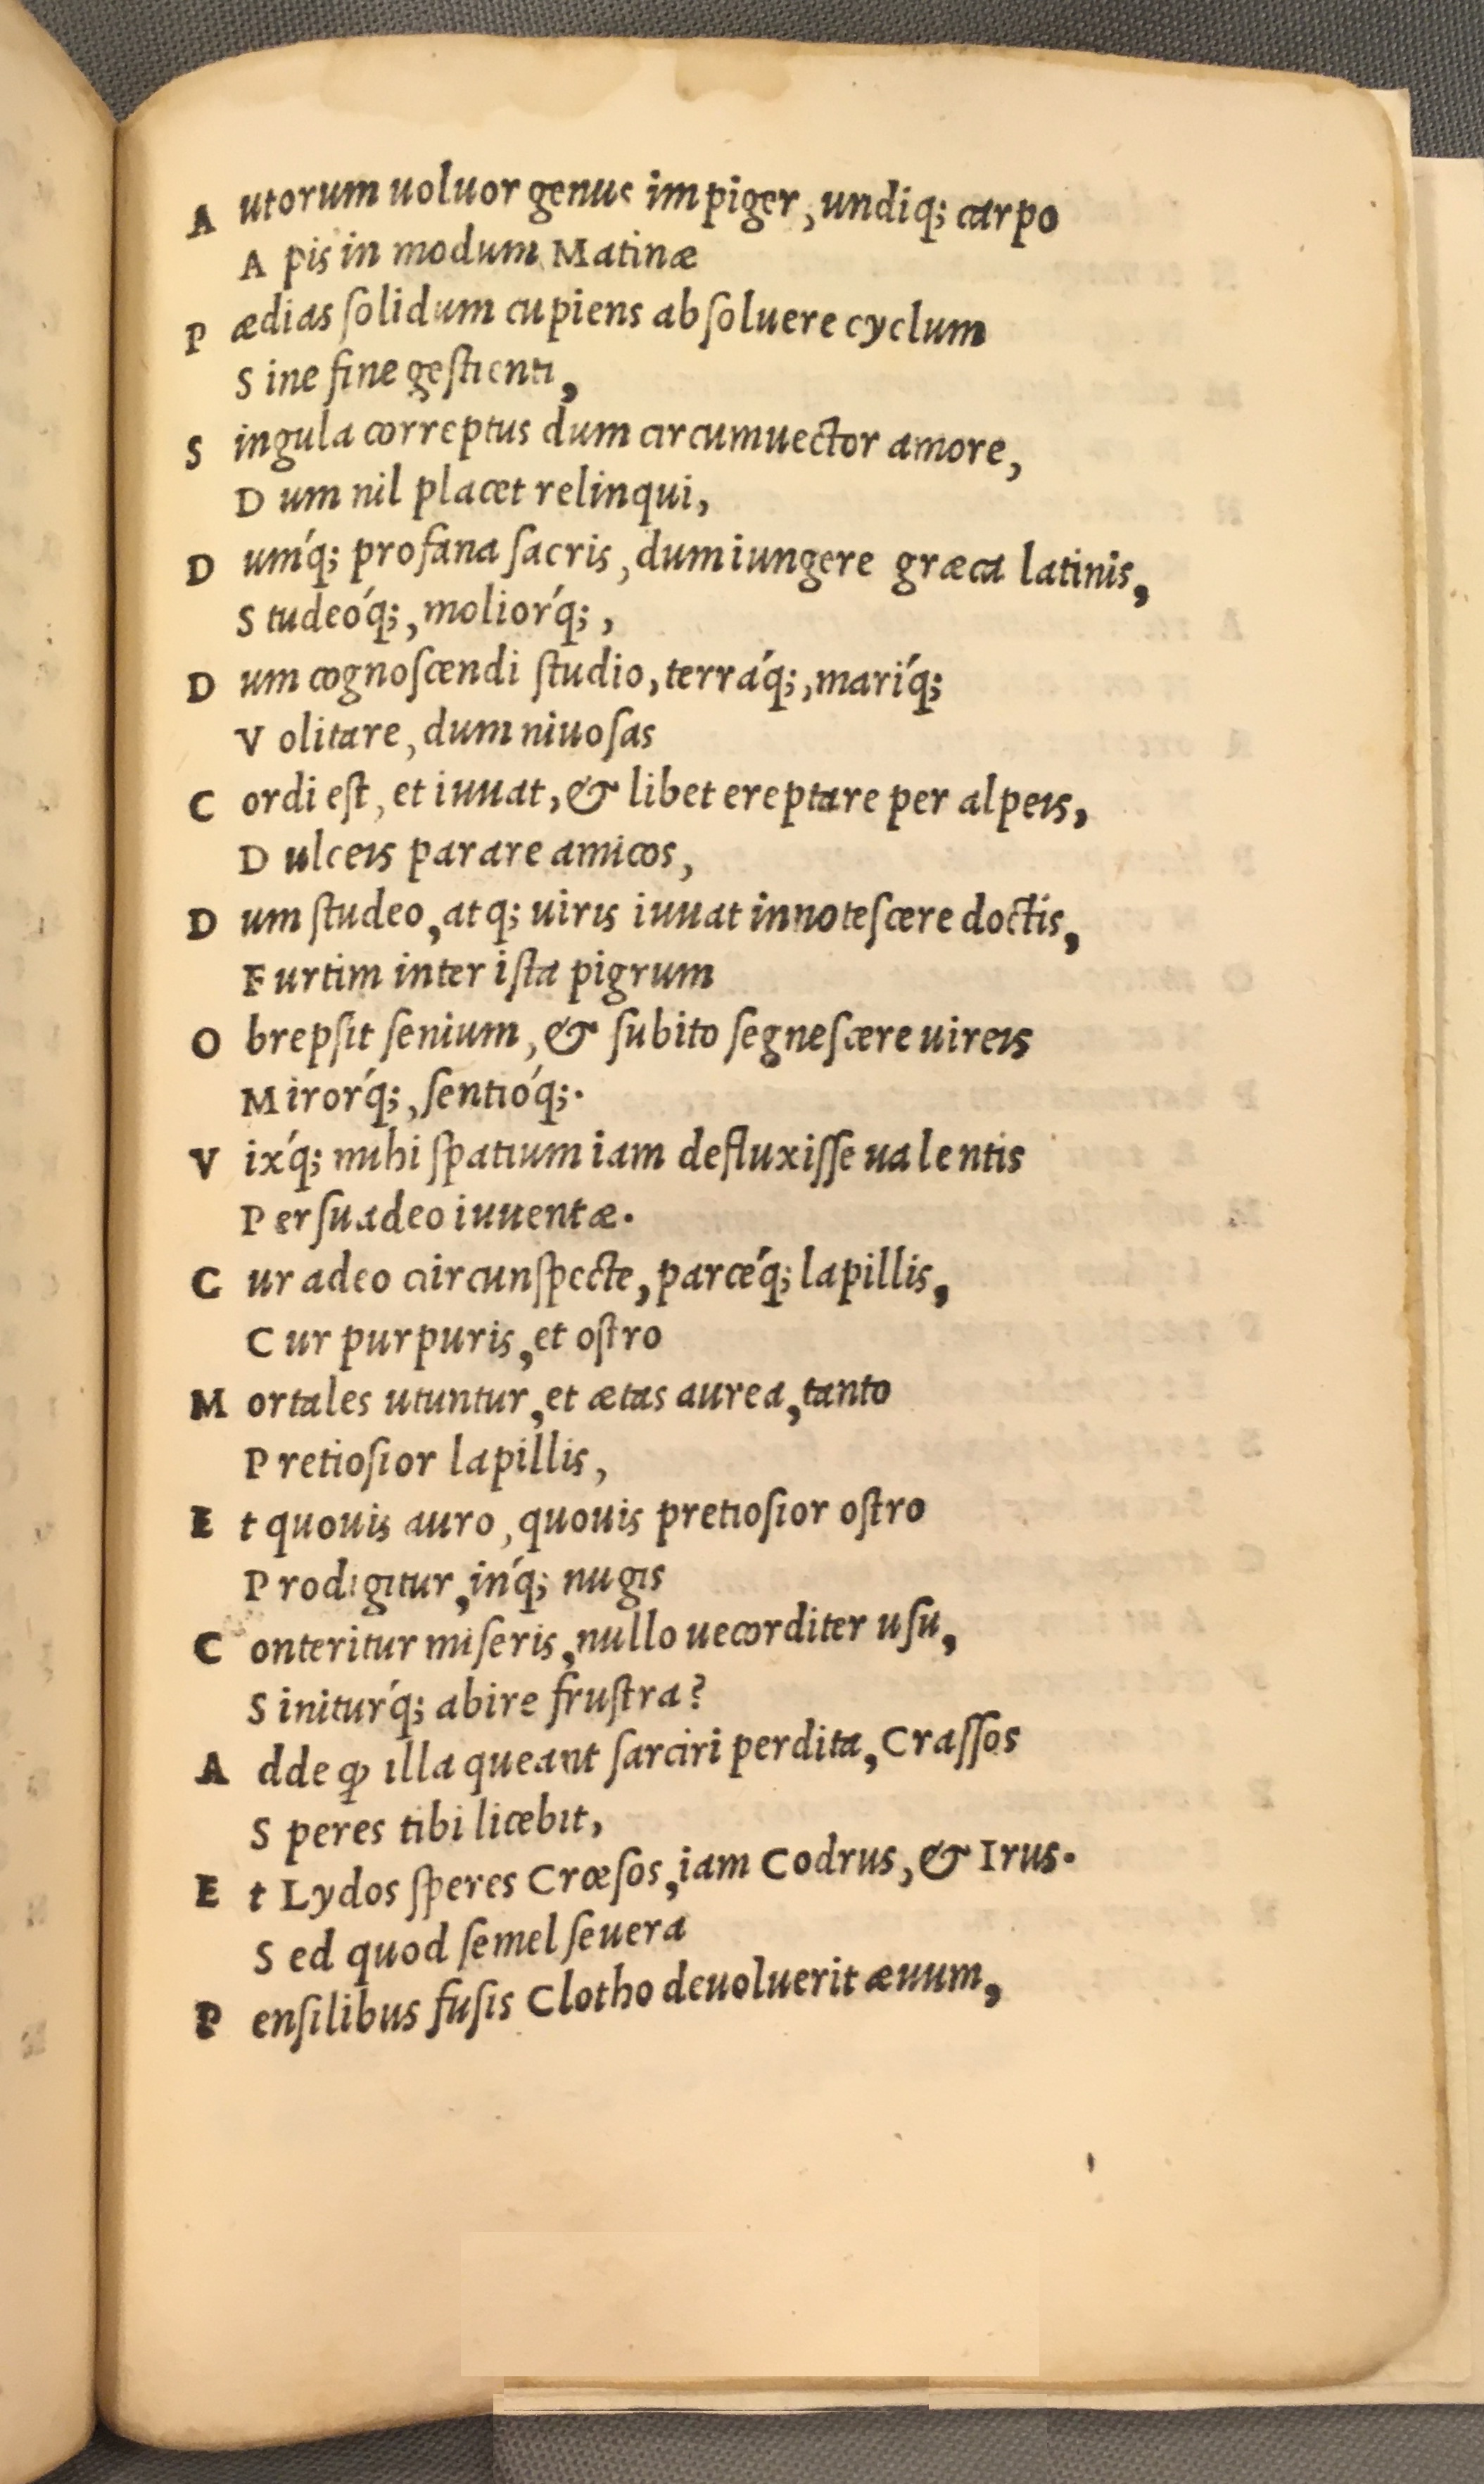 Autorum uoluor genus impiger, undiq; carpo
Apis in modum Matinæ
Pædias ſolidum cupiens abſoluere cyclum
Sine fine geſtienti,
Singula correptus dum circumuector amore,
Dum nil placet relinqui,
Dum´q; profana ſacris, dum iungere græca latinis,
Studeó´q;, molior´q;,
Dum cognoſcendi ſtudio, terrá´q;, mari´q;
Volitare, dum niuoſas
Cordi eſt, et iuuat, & libet ereptare per alpeis,
Dulceis parare amicos,
Dum ſtudeo, atq; uiris iuuat innoteſcere doctis,
Furtim inter iſta pigrum
Obrepſit ſenium, & ſubito ſegneſcere uireis
Miror´q;, ſentió´q;.
Vix´q; mihi ſpatium iam defluxiſſe ualentis
Perſuadeo iuuentæ.
Cur adeo circunſpecte, parcé´q; lapillis,
Cur purpuris, et oſtro
Mortales utuntur, et ætas aurea, tanto
Pretioſior lapillis,
Et quouis auro, quouis pretioſior oſtro
Prodigitur, in´q; nugis
Conteritur miſeris, nullo uecorditer uſu,
Sinitur´q; abire fruſtra?
Adde ꝙ illa queant ſarciri perdita, Craſſos
Speres tibi licebit,
Et Lydos ſperes Crœſos, iam Codrus, & Irus.
Sed quod ſemel ſeuera
Penſilibus fuſis Clotho deuoluerit æuum,